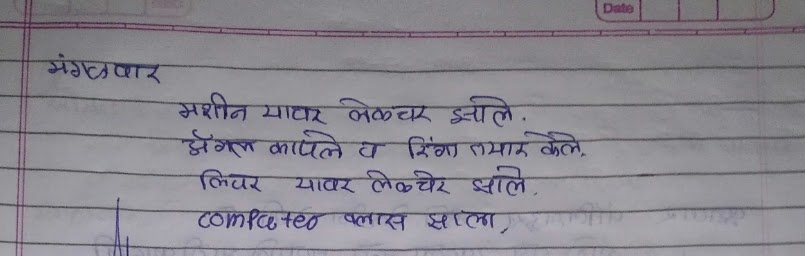 Date
मंगळवार
मशीन यावर लेकचर झाले.
अँगल कापले व रिंगा तयार केले.
लिवर यावर लेकचेर झाले.
computeo क्लास झाला,